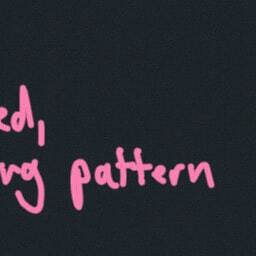 ed,
ng pattern